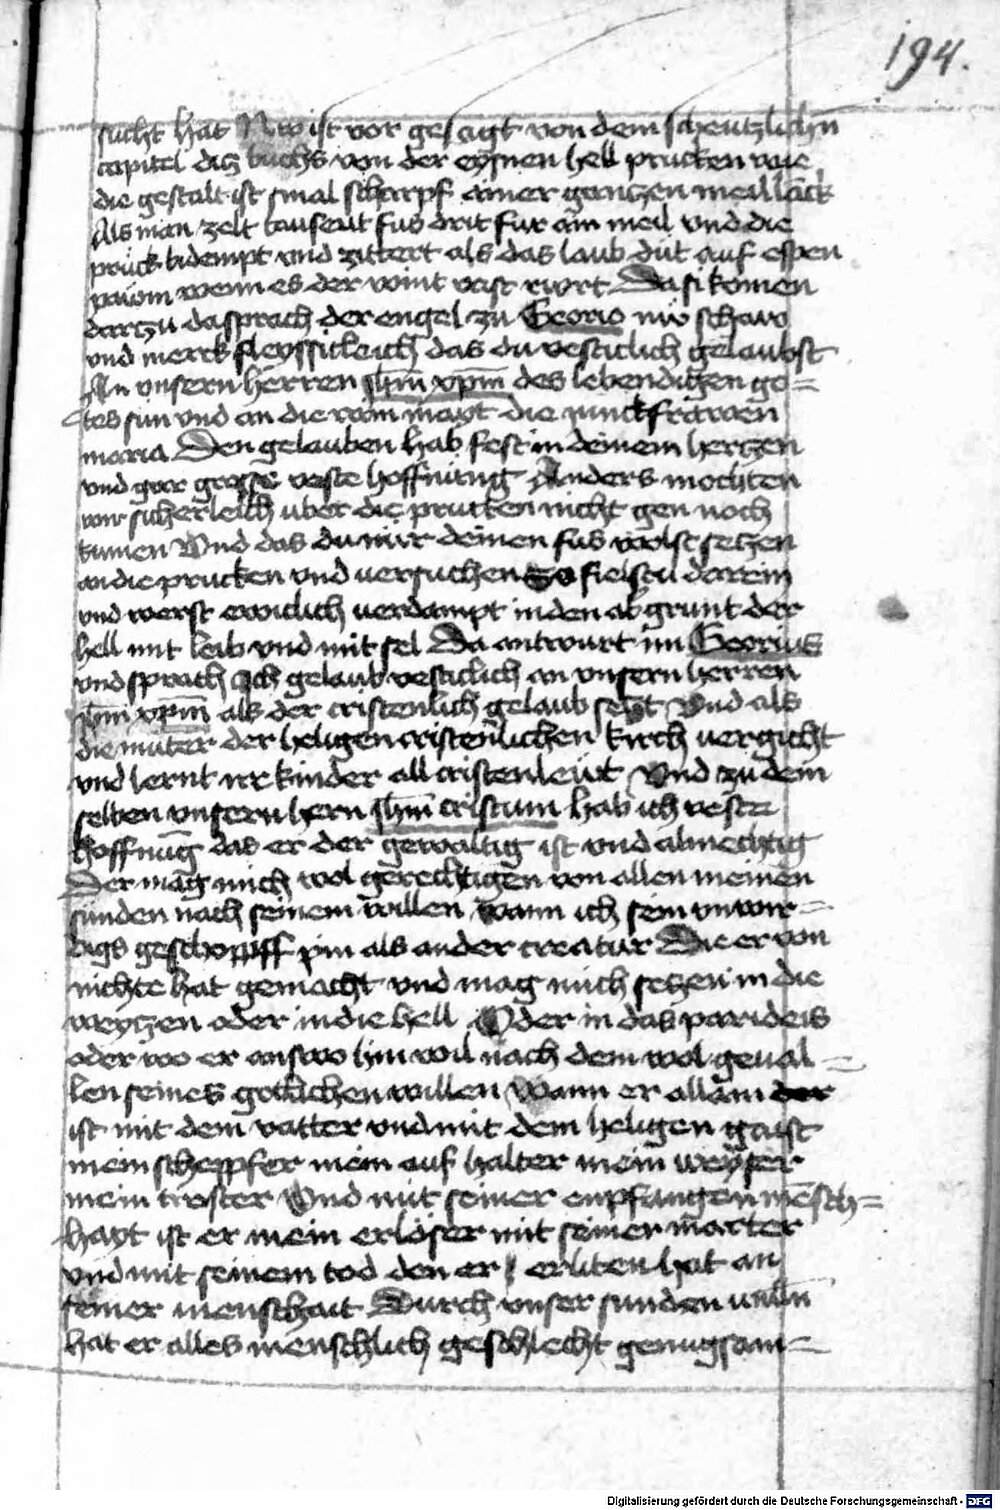 194.
sucht hat Nw ist vor gesagt von dem scheutzlichn
capitel diz buchs von der eysnen hell prucken wie
die gestalt ist smal scharpf ainer gantzen meil lanck
Als man zelt tausent fus drit fur ain meil vnd die
pruck bidempt vnd zittert als das laub dut auf espen
paum wenn es der wint vast rurt Da si komen
dartzu da sprach der engel zu Georio nu schaw
vnd merck fleyssicleich das du vesticlich gelaubst
An vnsern herren Jhm xpm des lebendigen go=
tes sun vnd an die rain mayt die junckfrawen
maria Den gelauben hab fest in deinem hertzen
vnd gar grosse veste hoffnung Anders mochten
wir sicherleich uber die prucken nicht gen noch
kumen Vnd das du nur deinen fus wolst setzen
an die prucken vnd versuchen So fielstu darein
vnd werst ewiclich verdampt in den abgrunt der
hell mit leib vnd mit sel Da antwurt im Georius
vnd sprach Ich gelaub vesticlich an vnsern herren
Jhm xpm als der cristenlich gelaub seyt Vnd als
die muter der heligen cristenlichen kirch vergicht
vnd lernt irr kinder all cristenleut Vnd zu dem
selben vnsern hern Jhm cristum hab ich veste
hoffnug das er der gewaltig ist vnd almechtig
Der mag mich wol gerechtigen von allen meinen
sunden nach seinem willen Wann ich sein vnwir=
digs geschopff pin als ander creatur Die er von
nichte hat gemacht vnd mag mich setzen in die
weytzen oder in die hell Oder in das parideis
oder wo er answo hin wil nach dem wol geual=
len seines gotlichen willen Wann er allain der
ist mit dem vatter vnd mit dem heligen gaist
mein schepffer mein auf halter mein weyser
mein troster Vnd mit seiner enpfangen mensch=
hayt ist er mein erloser mit seiner marter
vnd mit seinem tod den er erliten hat an
seiner menschait Durch vnser sunden willn
hat er alles menschlich geschlecht genugsam=
Digitalisierung gefördert durch die Deutsche Forschungsgemeinschaft - DFG